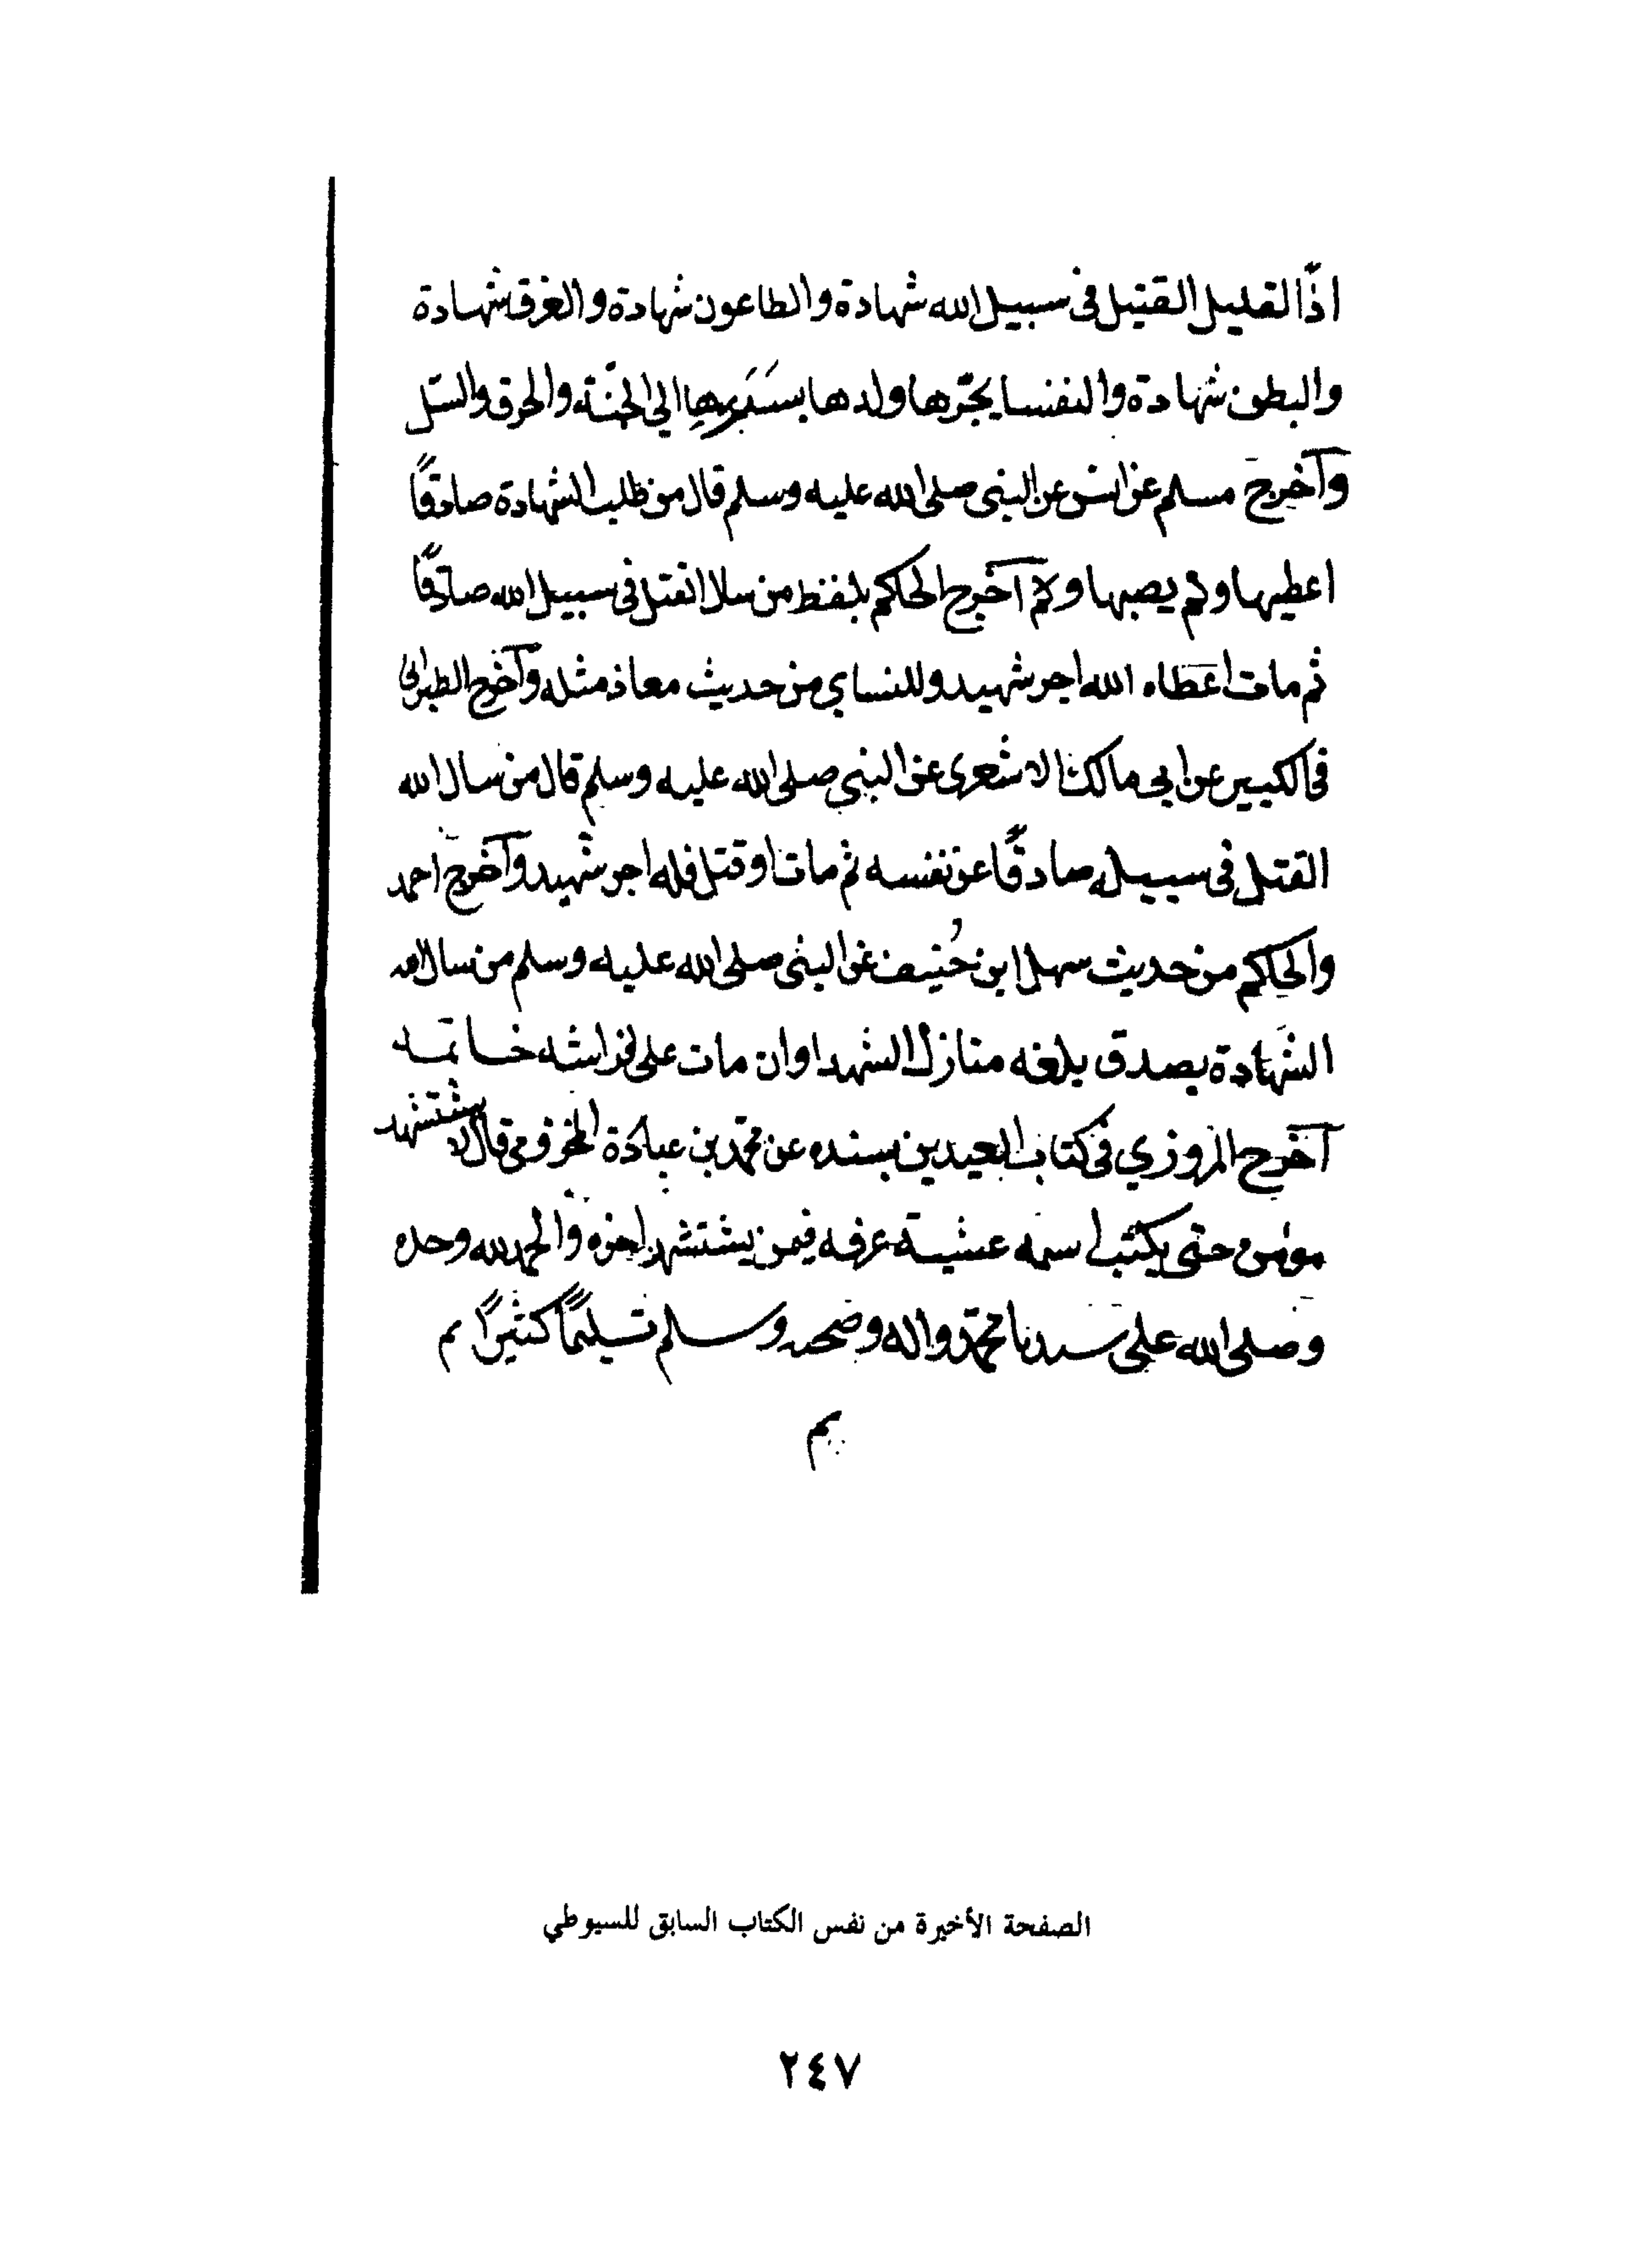 اذًا لقليل القتيل فى سبيل الله شهادة والطاعون شهادة والغرق شهادة
والبطن شهادة والنفسا يجرّها ولدها بسَرَرِهِا الي الجنّة والحرق والسّل
وآخرج مسلم عن انس عن النبى صلى الله عليه وسلم قال من طلب الشهادة صادقًا
اعطيها ولم يصبها ولآ آخرج الحاكم بلفظ من سلا القتل فى سبيل الله صادقًا
ثم مات اعطاه الله اجر شهيد وللنساي من حديث معاذ مثله وآخرج الطبرانى
فى الكبير عن ابى مالك الاشعرى عن النبى صلى الله عليه وسلم قال من سال الله
القتل فى سبيله صادقًا عن نفسه ثم مات او قتل فله اجر شهيد وآخرج احمد
والحاكم من حديث سهل ابن حُنيف عن النبى صلى الله عليه وسلم من سال الله
الشهادة بصدق بلغه منازل الشهدا وان مات على فراشه خاتمه
آخرج المروزي فى كتاب العيدين بسنده عن محمّد بن عبادة المخزومى قال لا يستشهد
مومن حتى يكتب اسمه عشية عرفه فيمن يستشهد اخره والحمد لله وحده
وصلى الله على سيدنا محمّد واله وصحبه وسلم تسليمًا كثيرًا م
م
الصفحة الأخيرة من نفس الكتاب السابق للسيوطي
٢٤٧